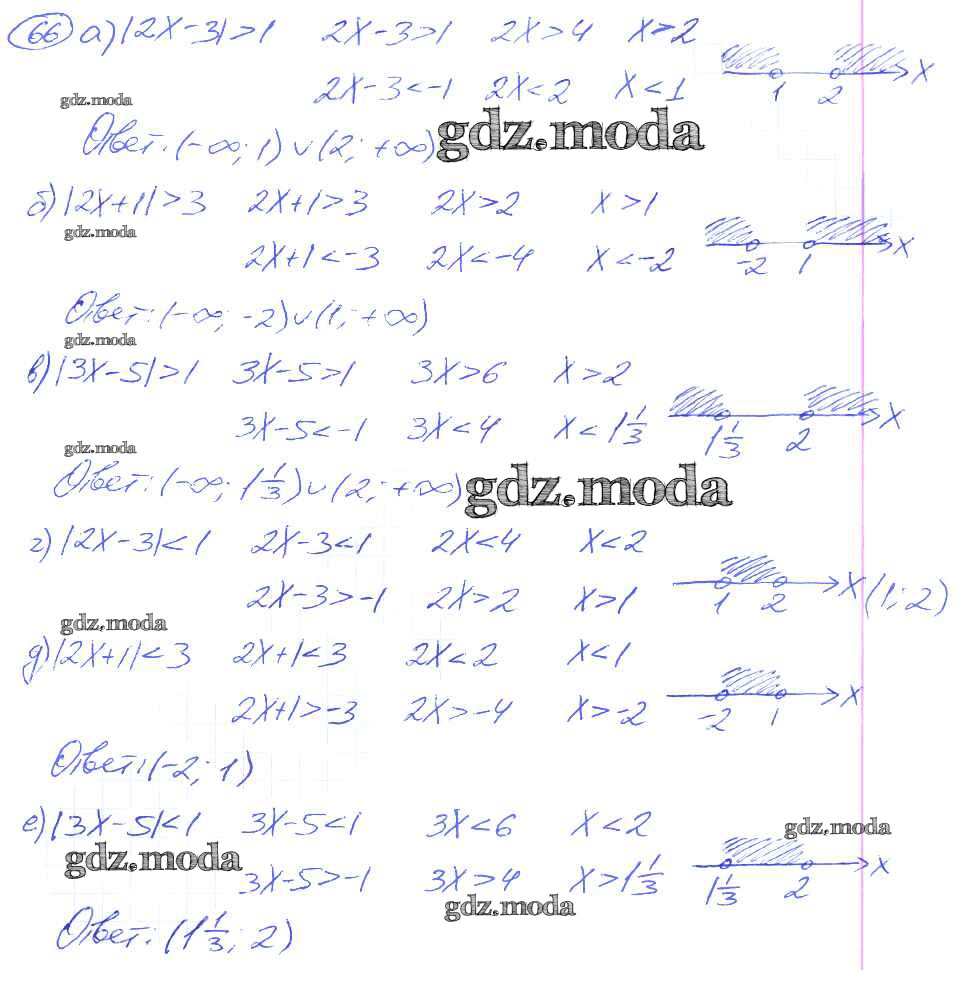 66 а) |2x-3|>1 2x-3>1 2x>4 x>2
2x-3<-1 2x<2 x<1
1 2 x
gdz.moda
Ответ: (-∞; 1)∪(2; +∞)
gdz.moda
б) |2x+1|>3 2x+1>3 2x>2 x>1
gdz.moda
2x+1<-3 2x<-4 x<-2
-2 1 x
Ответ: (-∞; -2)∪(1; +∞)
gdz.moda
в) |3x-5|>1 3x-5>1 3x>6 x>2
3x-5<-1 3x<4 x<1 1/3
1 1/3 2 x
gdz.moda
Ответ: (-∞; 1 1/3)∪(2; +∞)
gdz.moda
г) |2x-3|<1 2x-3<1 2x<4 x<2
2x-3>-1 2x>2 x>1
1 2 x (1; 2)
gdz.moda
д) |2x+1|<3 2x+1<3 2x<2 x<1
2x+1>-3 2x>-4 x>-2
-2 1 x
Ответ: (-2; 1)
е) |3x-5|<1 3x-5<1 3x<6 x<2
gdz.moda
gdz.moda
3x-5>-1 3x>4 x>1 1/3
1 1/3 2 x
gdz.moda
Ответ: (1 1/3; 2)